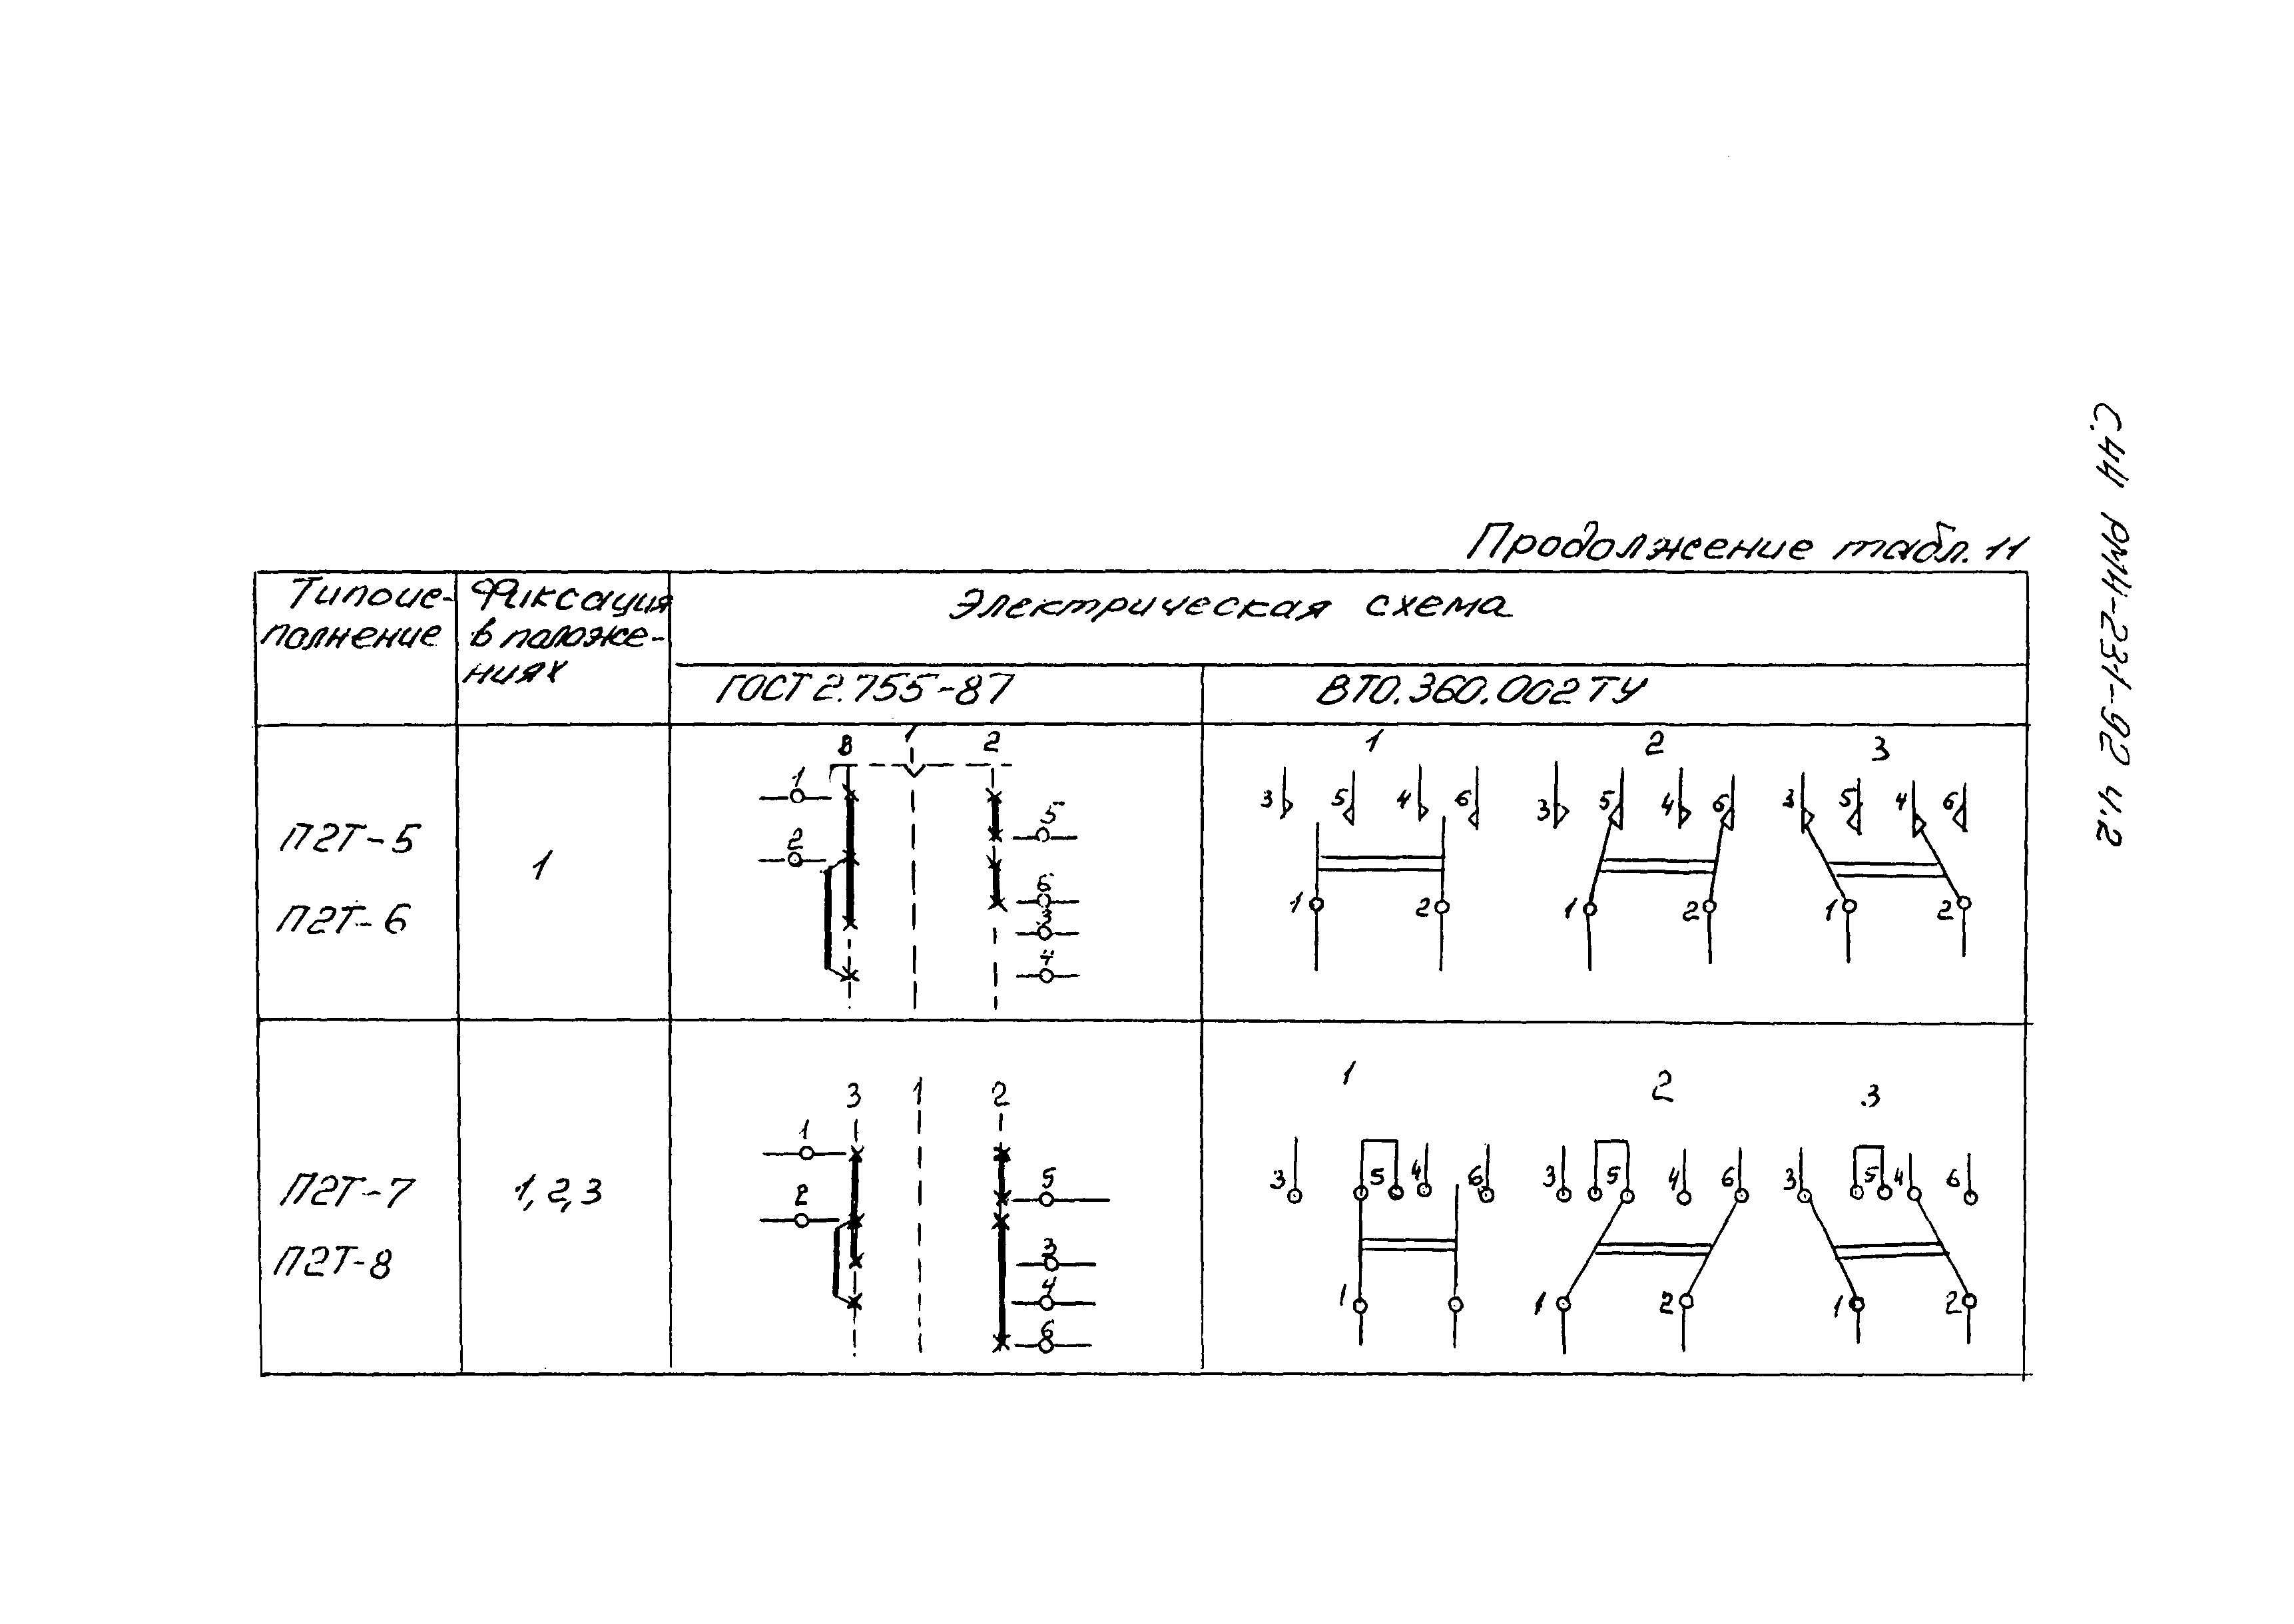 С.44 РМ4-231-92 ч.2
Продолжение табл. 11
Типоис-
полнение
Фиксация
в положе-
ниях
Электрическая схема
ГОСТ 2.755-87
ВТ0.360.002 ТУ
П2Т-5
П2Т-6
1
1 2
1
2
5
6
3
4
1 2 3
3 5 4 6 3 5 4 6 3 5 4 6
1 2 1 2 1 2
П2Т-7
П2Т-8
1, 2, 3
3 1 2
1
2
5
3
4
6
1 2 3
3 5 4 6 3 5 4 6 3 5 4 6
1 1 2 1 2